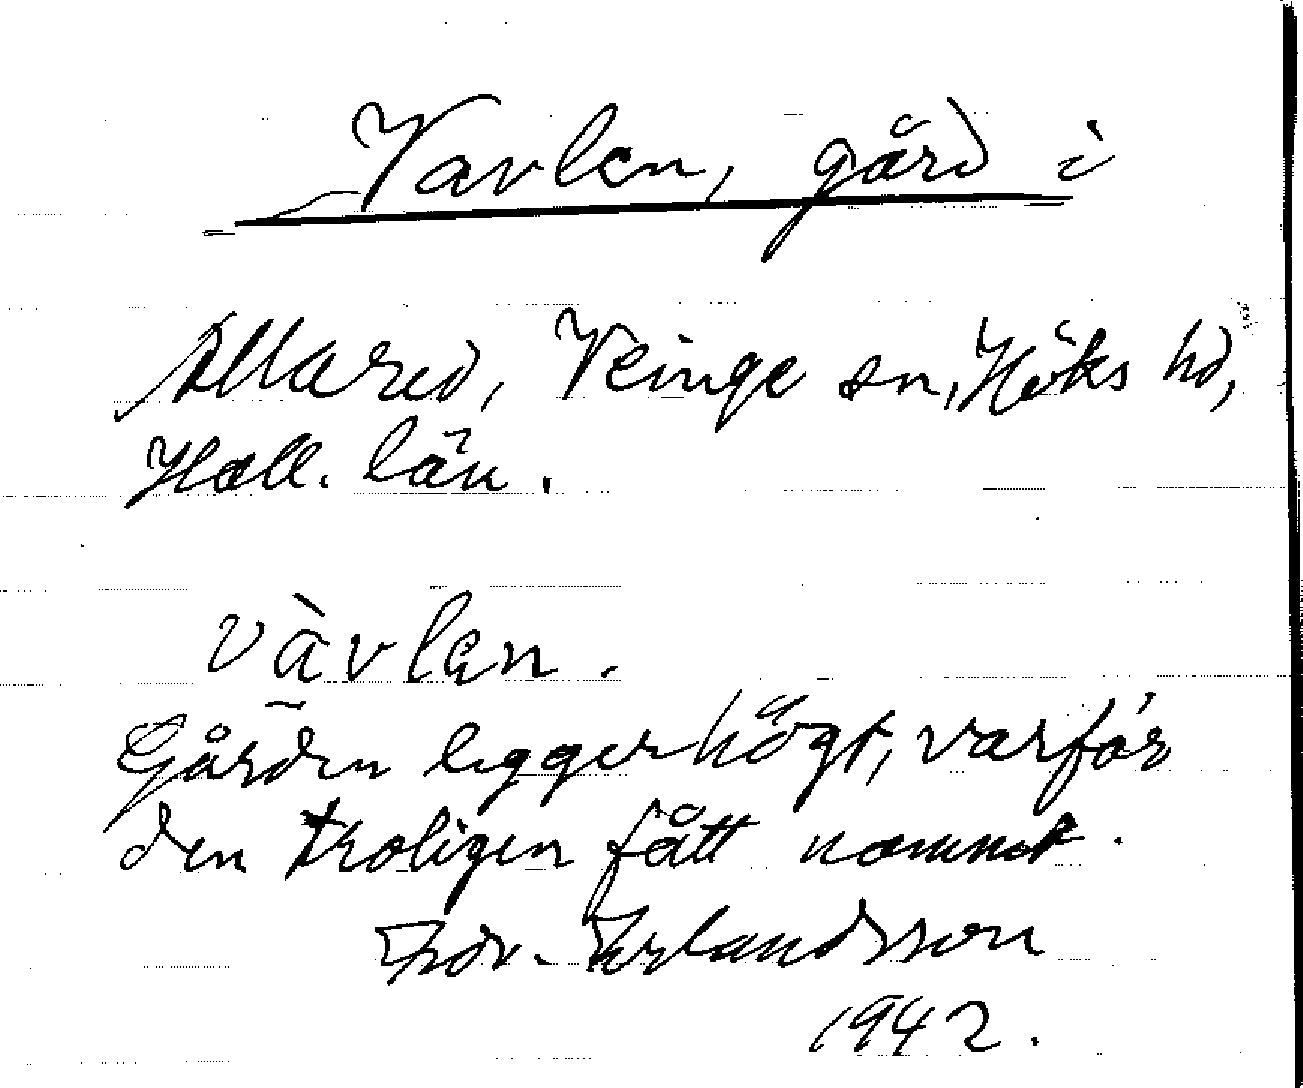 Vavlen, gård i
Allared, Veinge sn, Höks hd,
Hall. län.
vàvlen.
Gården ligger högt, varför
den troligen fått namnet.
Edv. Erlandsson
1942.